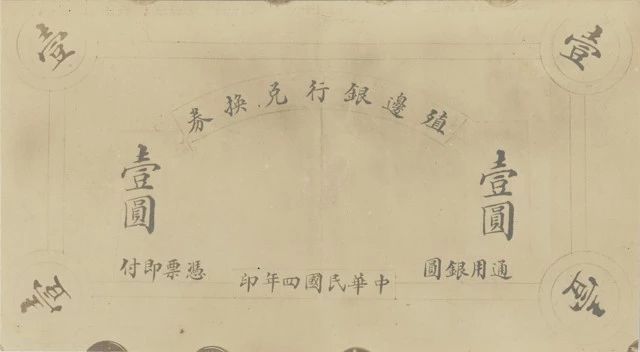 壹
壹
殖邊銀行兌換券
壹圓
壹圓
通用銀圓
憑票即付
中華民國四年印
壹
壹